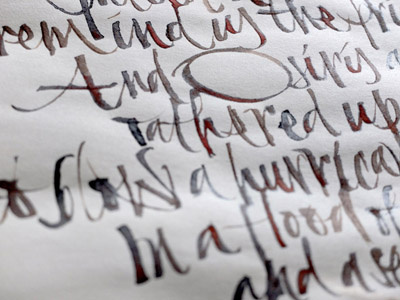 remind us the fri
And Osiris a
Gathered up
to blow a hurrica
In a flood of
and a se